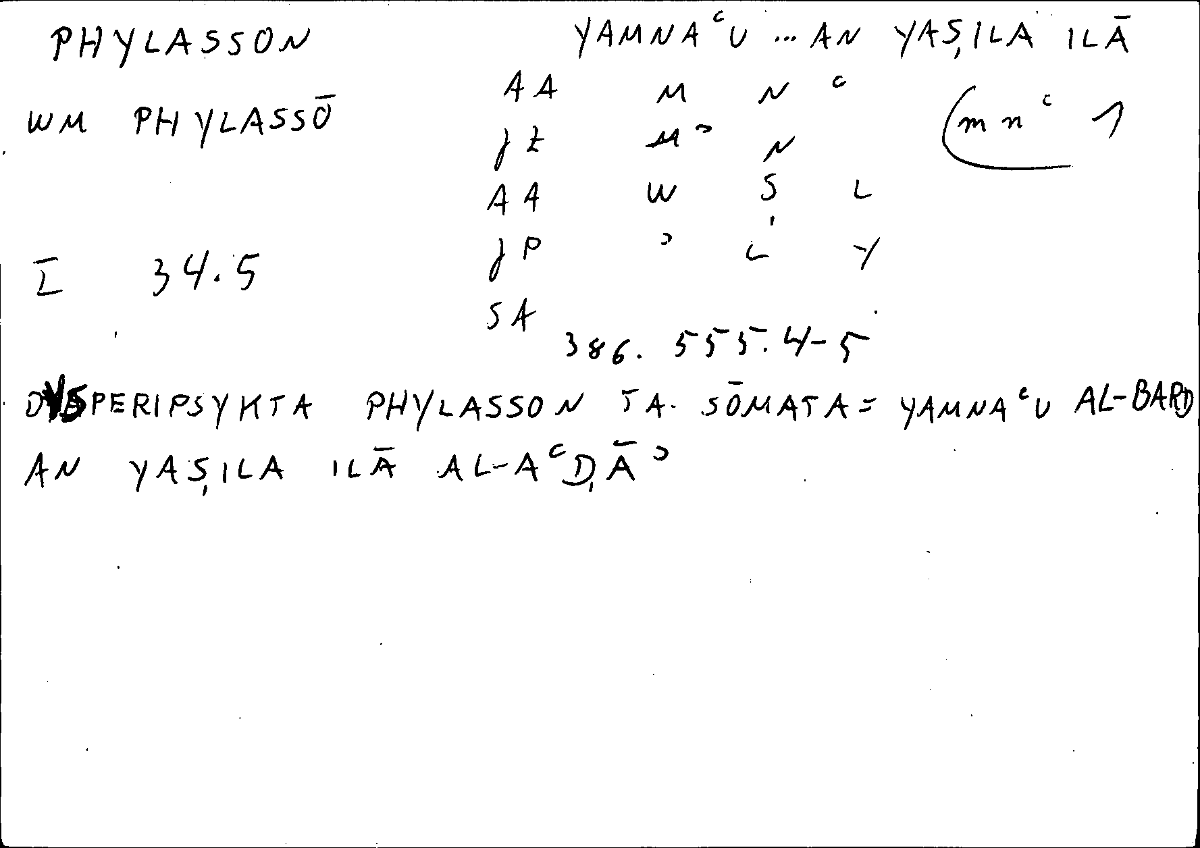 PHYLASSON YAMNAʿU ... AN YAṢILA ILĀ
WM PHYLASSŌ AA M N ʿ (mnʿ 1
JZ Mʾ N
AA W Ṣ L
I 34.5 JP ʾ L Y
SA
386. 555.4-5
DYSPERIPSYKTA PHYLASSON TA SŌMATA = YAMNAʿU AL-BARD
AN YAṢILA ILĀ AL-AʿḌĀʾ